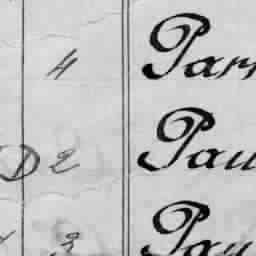 4 Parr
D 2 Pau
3 Pau